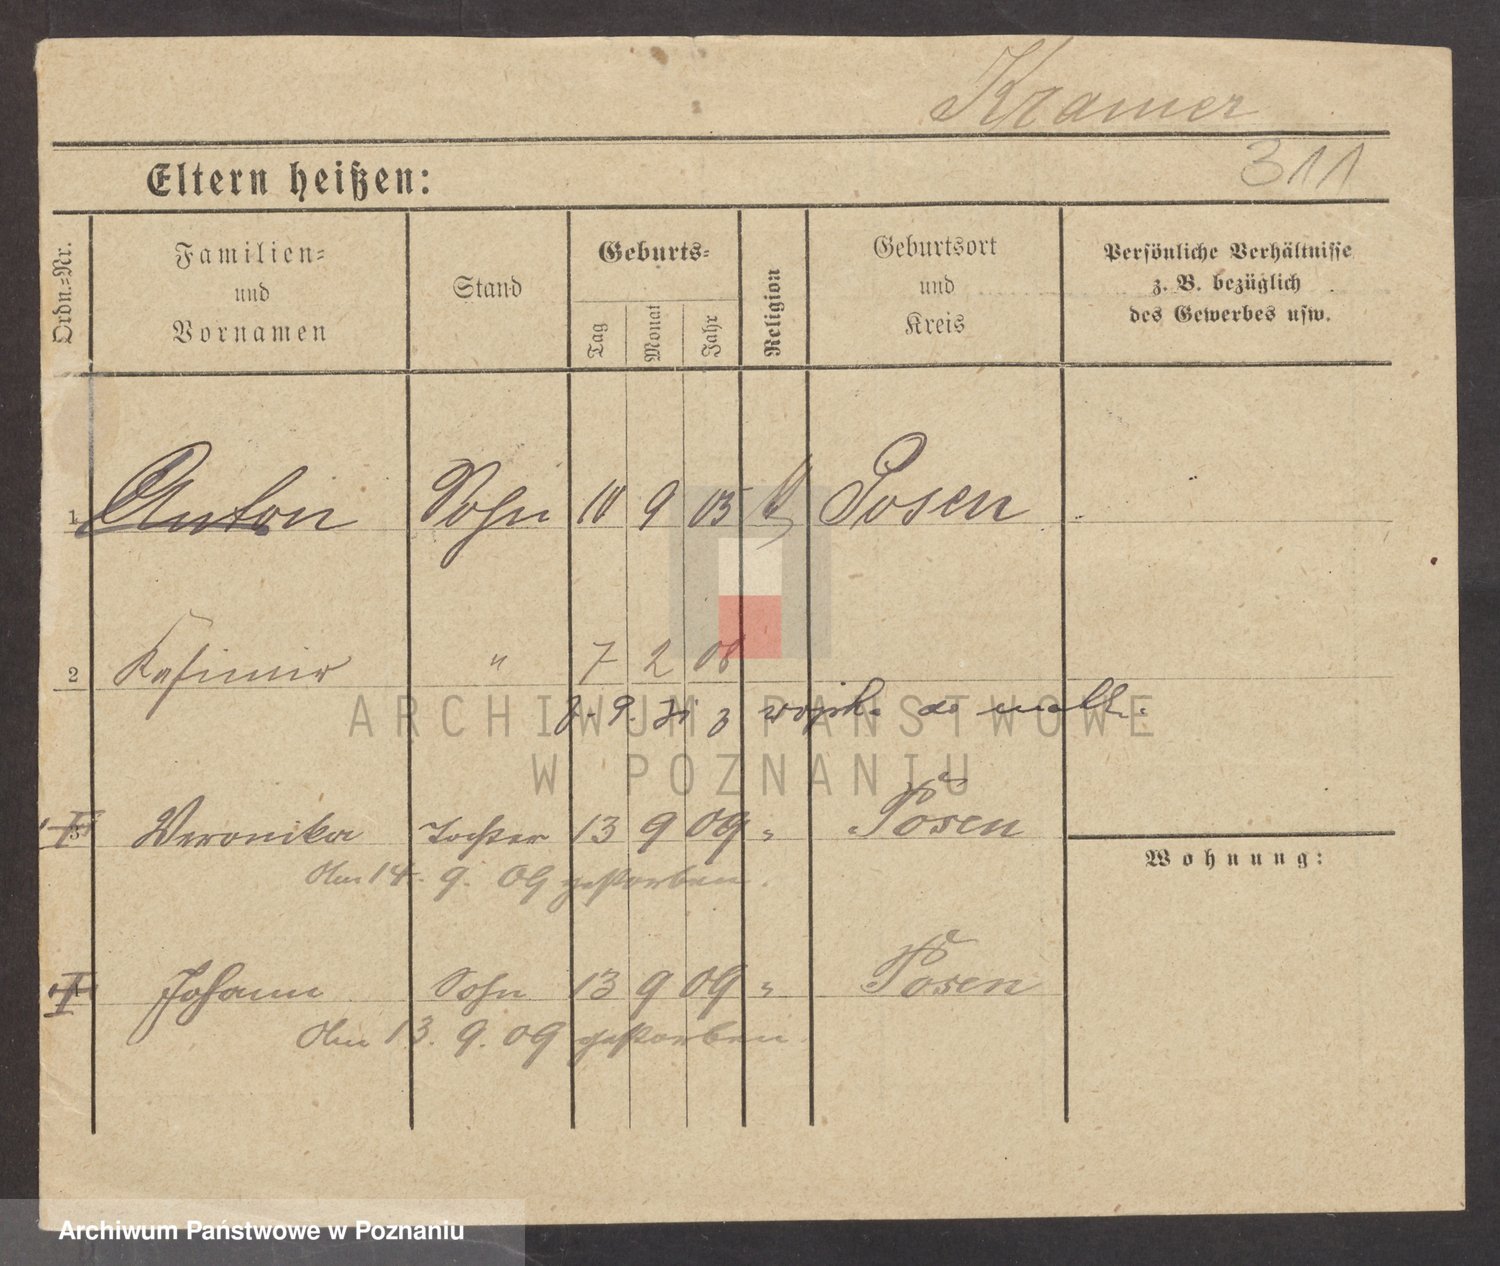 Kramer
311
Eltern heißen:
Ordn.-Nr.
Familien-
und
Vornamen
Stand
Geburts-
Tag
Monat
Jahr
Religion
Geburtsort
und
Kreis
Persönliche Verhältnisse
z. B. bezüglich
des Gewerbes usw.
1 Anton Sohn 10 9 05 Posen
2 Kasimir " 7 2 08
ARCHIWUM PAŃSTWOWE
W POZNANIU
3 Veronika Tochter 13 9 09 " Posen
Am 14. 9. 09 gestorben.
Wohnung:
Johann Sohn 13 9 09 " Posen
Am 13. 9. 09 gestorben.
Archiwum Państwowe w Poznaniu